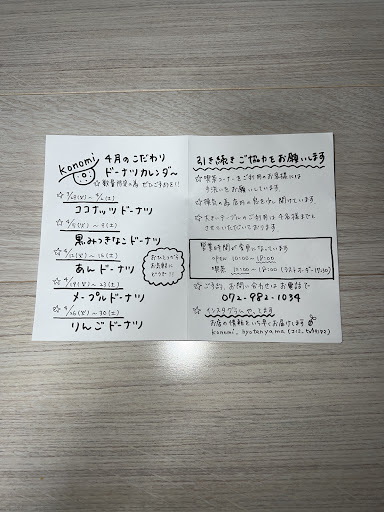 konomi
4月のこだわり
ドーナツカレンダ〜
☆ 数量限定の為 ぜひご予約を!!
ココナッツドーナツ
☆ 4/5(火)〜9(土)
黒みつきなこドーナツ
☆ 4/12(火)〜16(土)
あんドーナツ
おひとつから
お気軽に
どうぞ!!
☆ 4/19(火)〜23(土)
メープルドーナツ
☆ 4/26(火)〜30(土)
りんごドーナツ
引き続きご協力をお願いします
☆ 喫茶コーナーをご利用のお客様には
手洗いをお願いしています
☆ 換気の為店内の窓を少し開けています
☆ 大きいテーブルのご利用は4名様までと
させていただいております
営業時間が変更になっています
open 10:00〜18:00
喫茶 10:00〜18:00 (ラストオーダー17:30)
☆ ご予約、お問い合わせはお電話で
072-982-1034
☆ インスタグラムやってます
お店の情報をいち早くお届けします